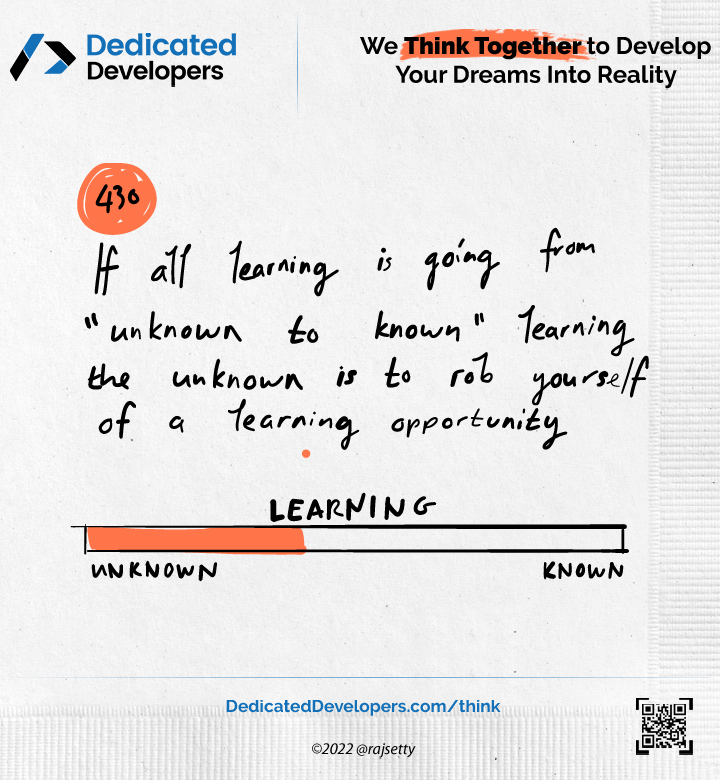 Dedicated
Developers
We Think Together to Develop
Your Dreams Into Reality
430
If all learning is going from
"unknown to known" learning
the unknown is to rob yourself
of a learning opportunity
LEARNING
UNKNOWN
KNOWN
DedicatedDevelopers.com/think
©2022 @rajsetty